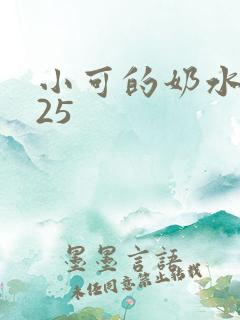 小可的奶水
25
墨墨言語
未经同意禁止转载